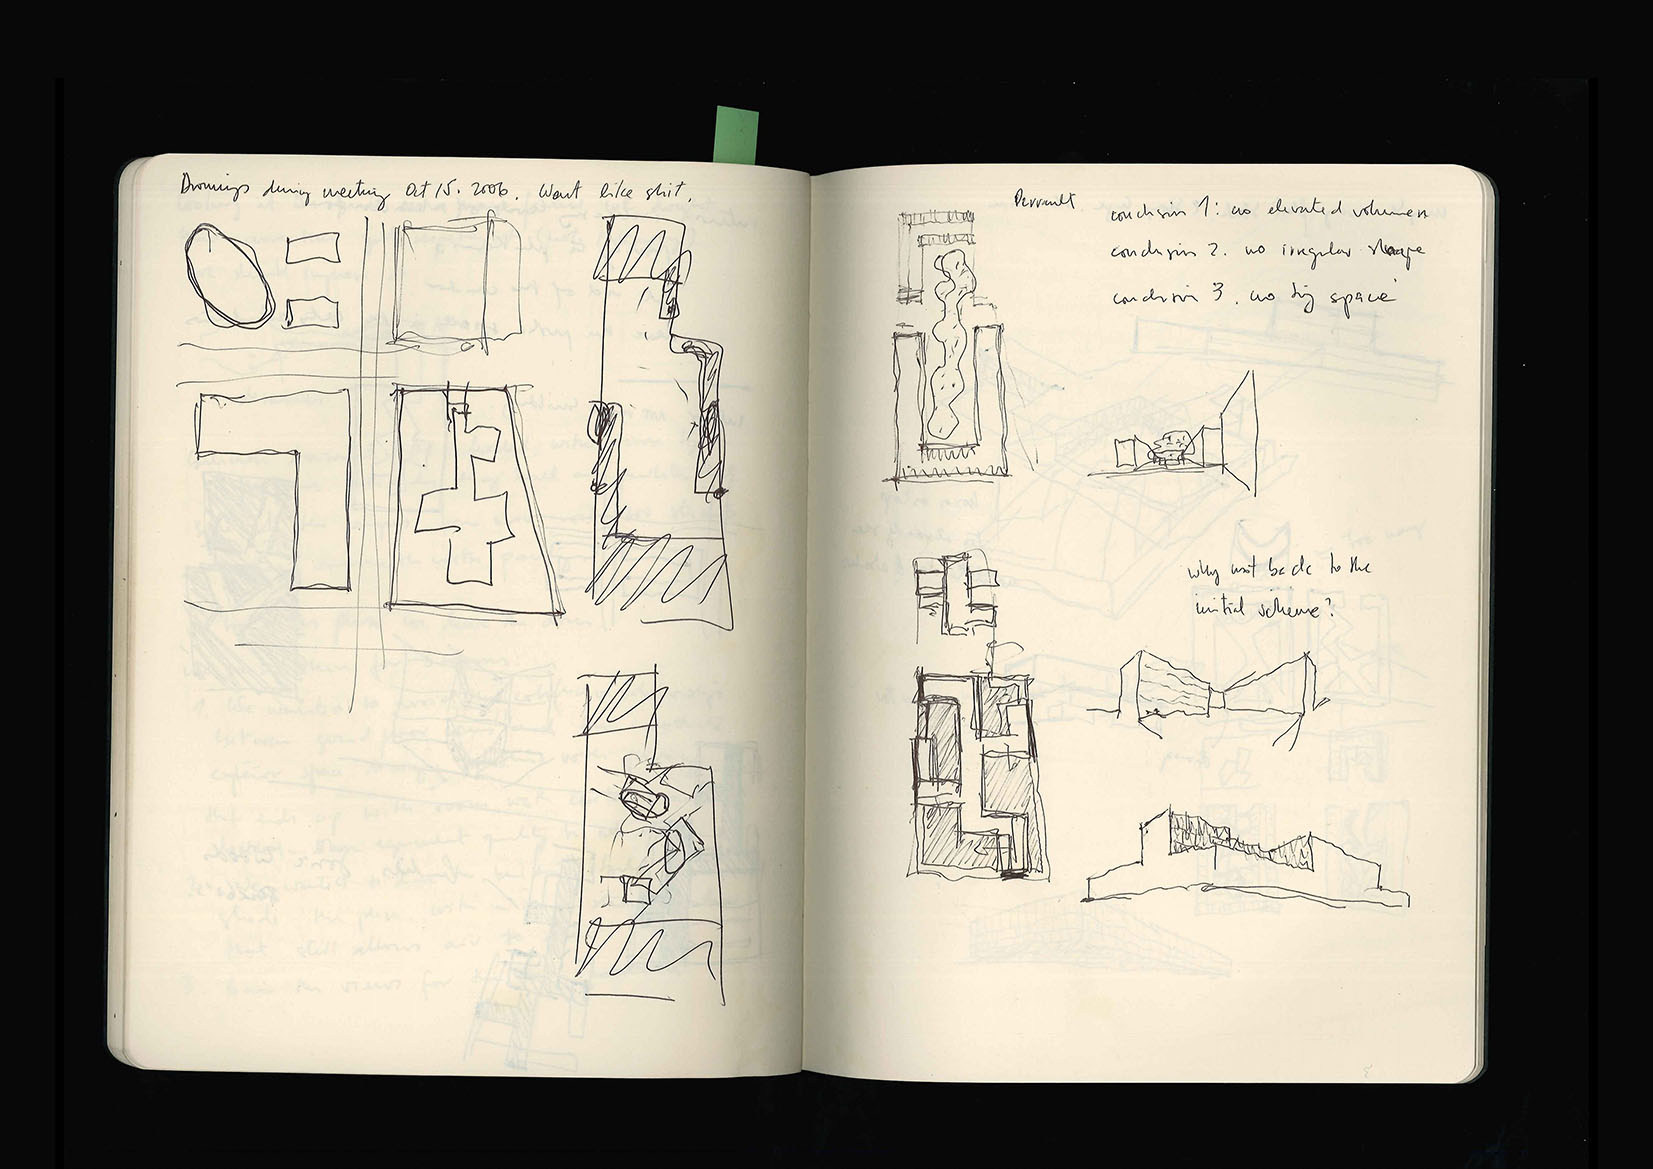 Drawings during meeting Oct 15. 2006. Went like shit.
Perrault
conclusion 1: no elevated volumen
conclusion 2. no irregular shape
conclusion 3. no big space
why not back to the
initial scheme?